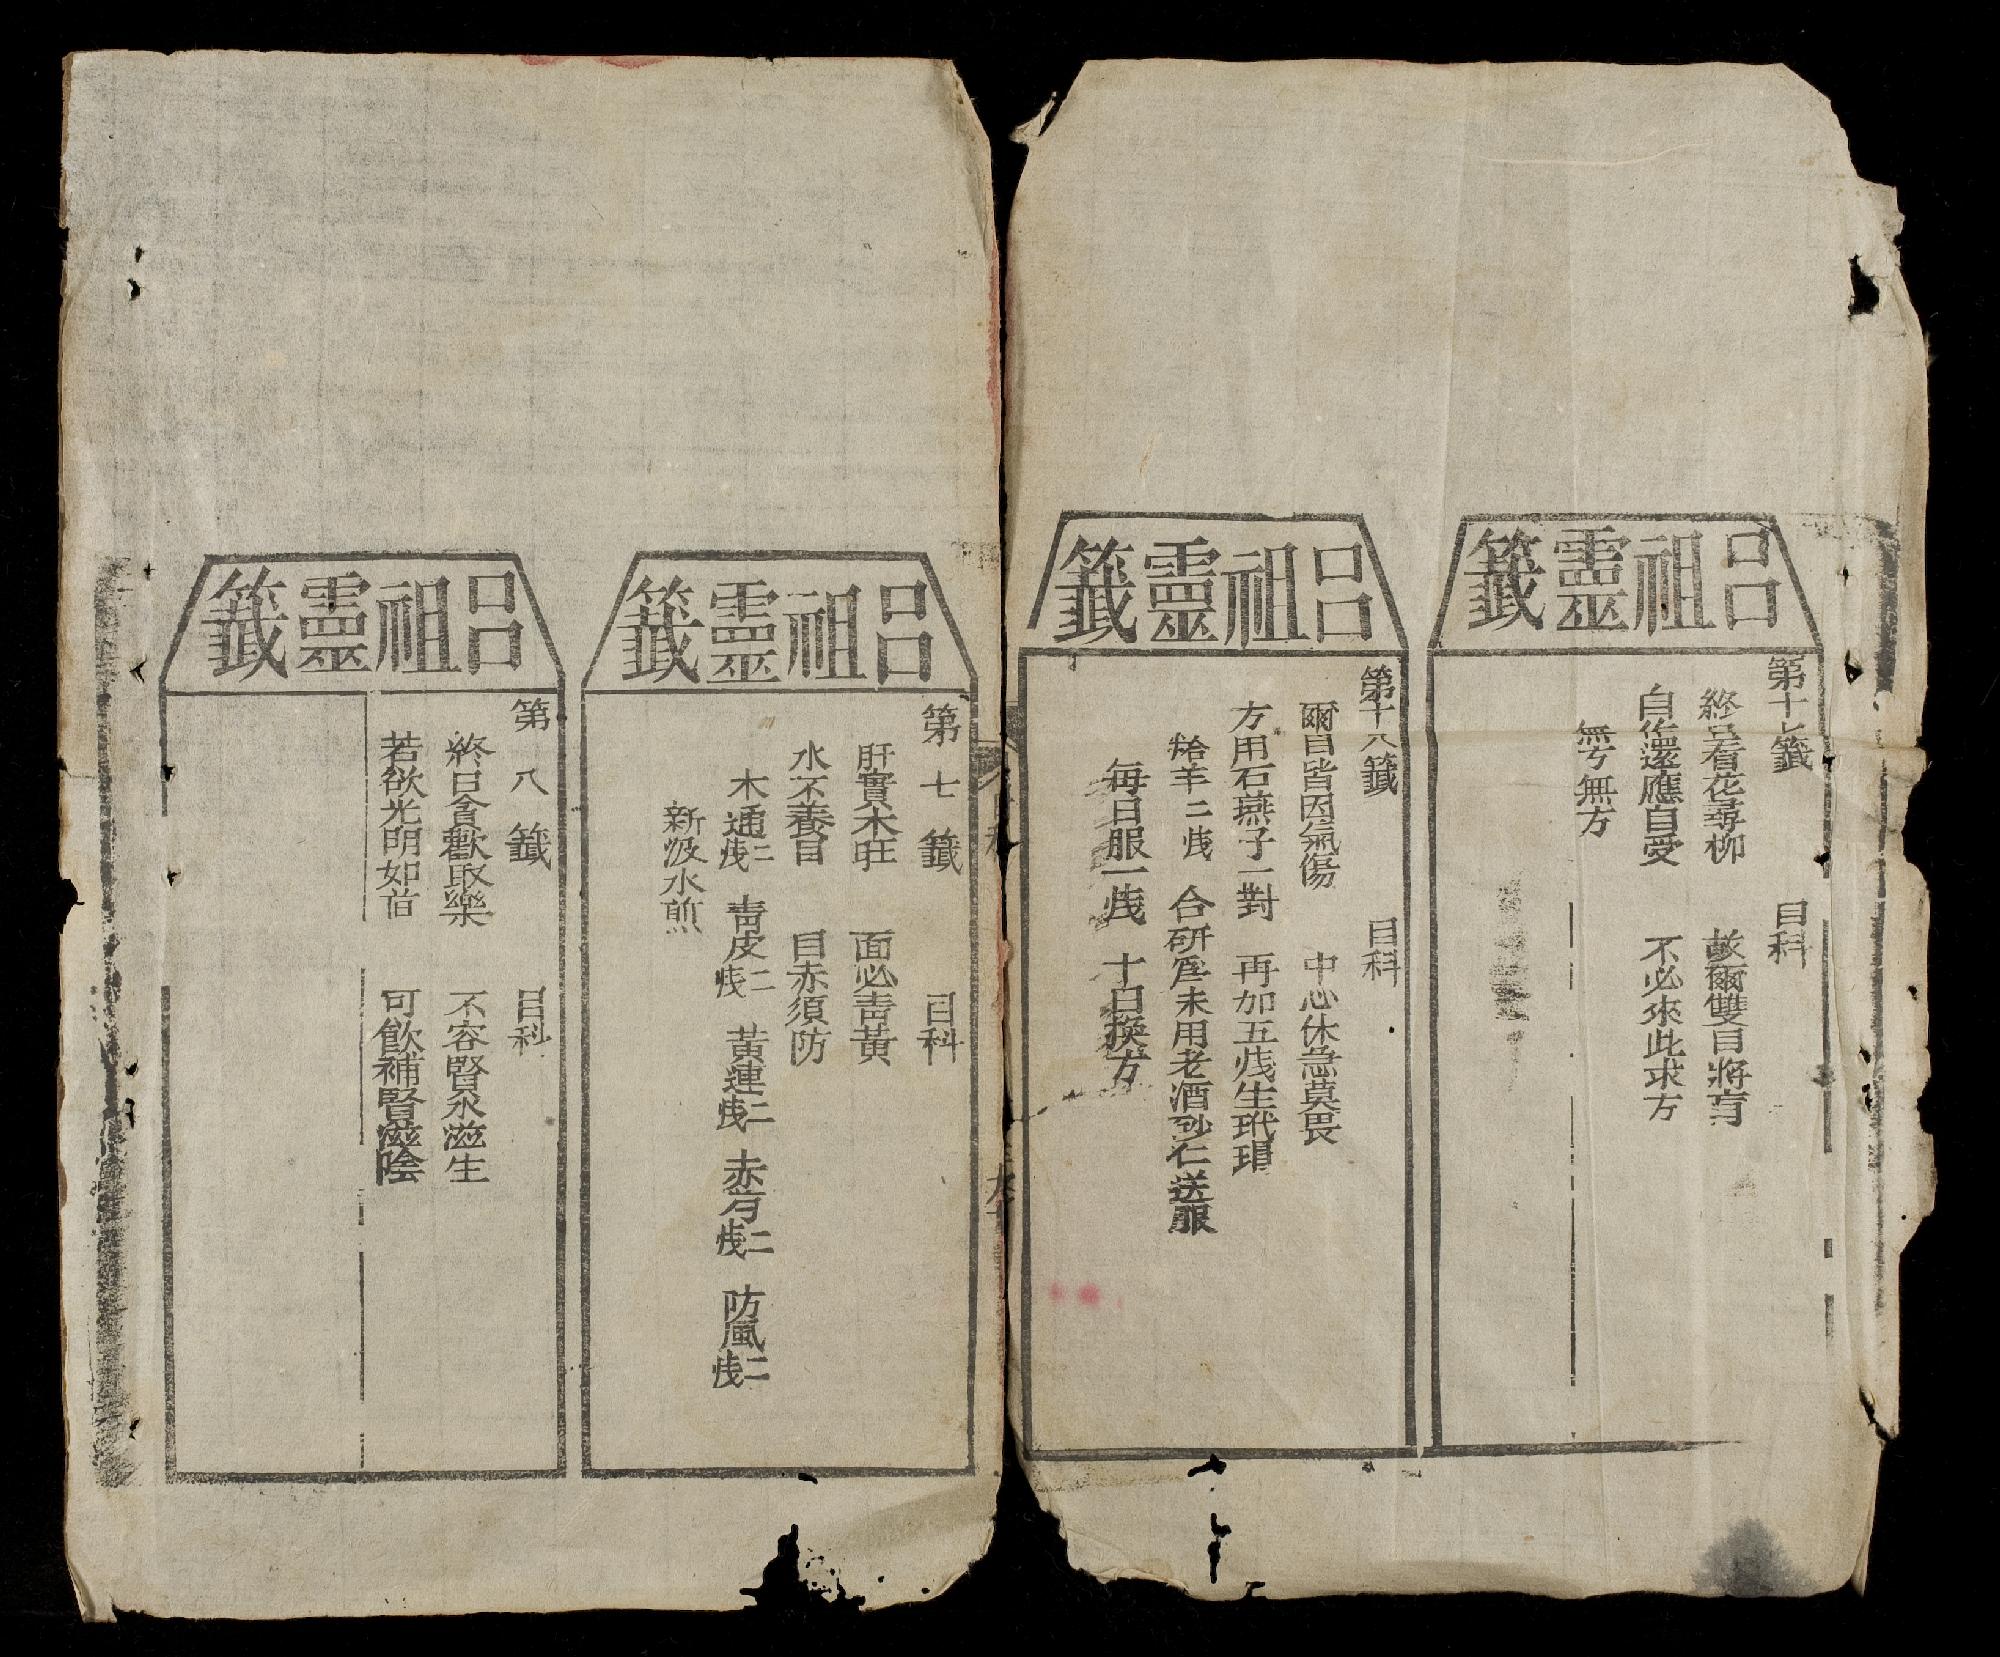 呂祖靈籤
第十七籤 目科
終日看花尋柳 故爾雙目將盲
自作還應自受 不必來此求方
無兮無方
呂祖靈籤
第十八籤 目科
爾目皆因氣傷 中心休急莫畏
方用石燕子一對 再加五戋生玳瑁
羚羊二戋 合研為末用老酒砂仁送服
每日服一戋 十日換方
呂祖靈籤
第七籤 目科
肝實木旺 面必青黃
水不養目 目赤須防
木通二戋 青皮二戋 黃連二戋 赤芍二戋 防風二戋
新汲水煎
呂祖靈籤
第八籤 目科
終日貪歡取樂 不容腎水滋生
若欲光明如舊 可飲補腎滋陰